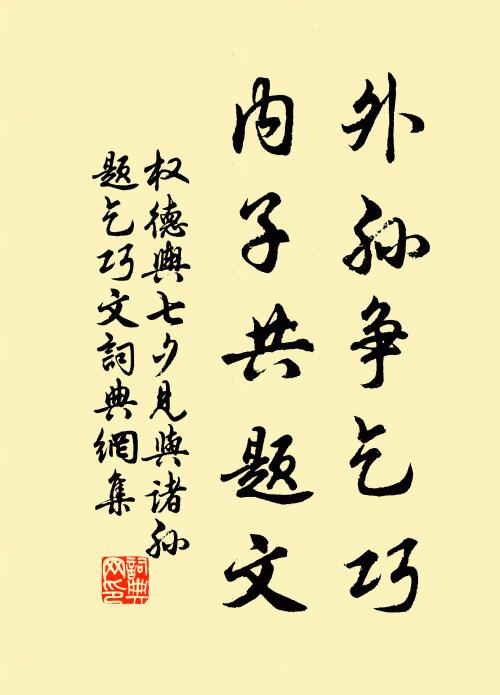 外孙争乞巧
内子共题文
权德舆七夕见与诸孙
题乞巧文詞典網集
詞典网印